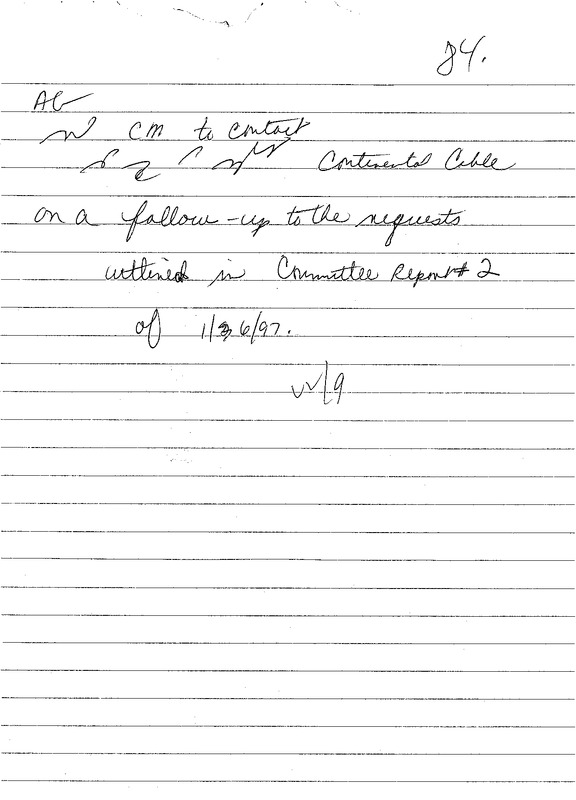 84.
AG
CM to contact
Continental Cable
on a follow-up to the requests
outlined in Committee Report # 2
of 1/26/97.